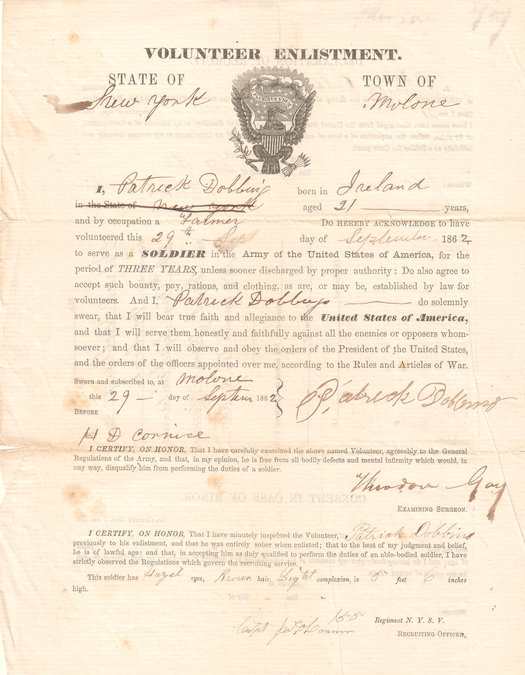 VOLUNTEER ENLISTMENT.
STATE OF TOWN OF
New York Molone
I, Patrick Dobbins born in Ireland
in the State of New York aged 21 years,
and by occupation a Farmer Do HEREBY ACKNOWLEDGE to have
volunteered this 29th Sept day of September 1862
to serve as a SOLDIER in the Army of the United States of America, for the
period of THREE YEARS, unless sooner discharged by proper authority: Do also agree to
accept such bounty, pay, rations, and clothing, as are, or may be, established by law for
volunteers. And I, Patrick Dobbins do solemnly
swear, that I will bear true faith and allegiance to the United States of America,
and that I will serve them honestly and faithfully against all the enemies or opposers whom-
soever; and that I will observe and obey the orders of the President of the United States,
and the orders of the officers appointed over me, according to the Rules and Articles of War.
Sworn and subscribed to, at Molone
this 29 day of 1862 Patrick Dobbins
BEFORE
H D
I CERTIFY, ON HONOR, That I have carefully examined the above named Volunteer, agreeably to the General
Regulations of the Army, and that, in my opinion, he is free from all bodily defects and mental infirmity which would, in
any way, disqualify him from performing the duties of a soldier.
Theodore Gay
EXAMINING SURGEON.
I CERTIFY, ON HONOR, That I have minutely inspected the Volunteer, Patrick Dobbins
previously to his enlistment, and that he was entirely sober when enlisted; that to the best of my judgment and belief,
he is of lawful age: and that, in accepting him as duly qualified to perform the duties of an able-bodied soldier, I have
strictly observed the Regulations which govern the recruiting service.
This soldier has Hazel eyes, Brown hair, Light complexion, is 5 feet 6 inches
high.
Regiment N. Y. S. V.
RECRUITING OFFICER.
CONSENT IN CASE OF MINOR